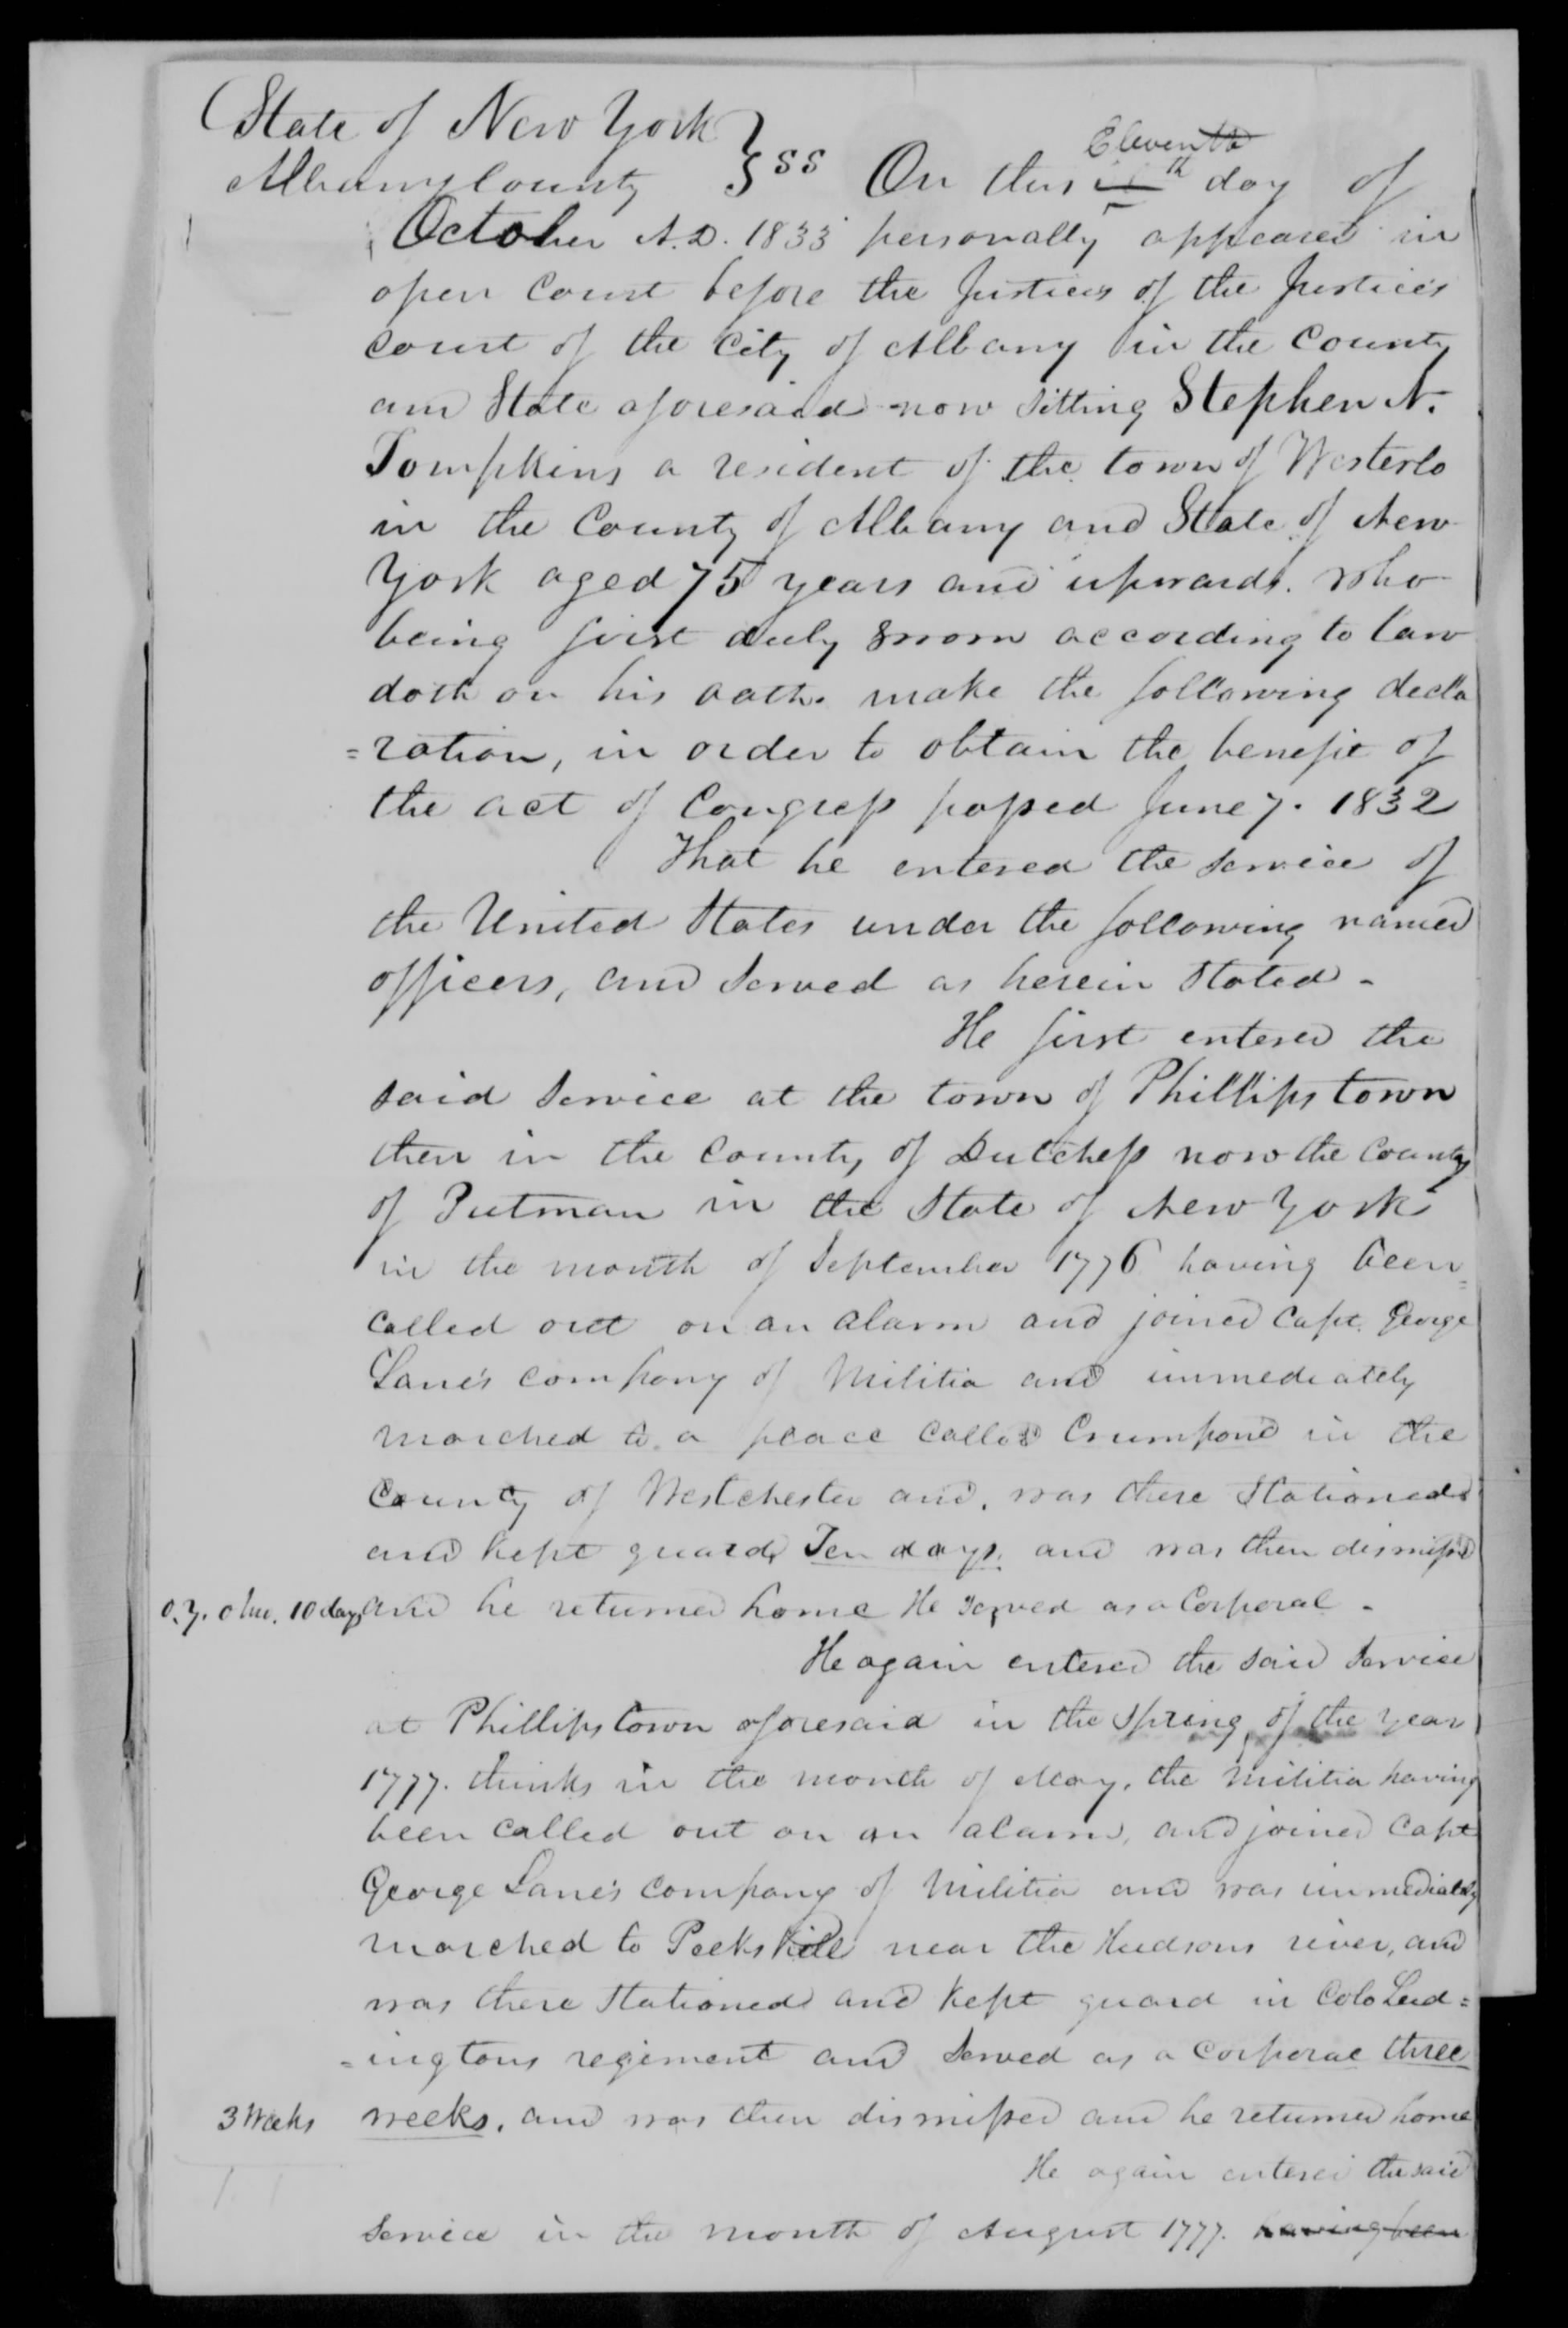 State of New York
Albany County } SS On this Eleventh th day of
October A.D. 1833 personally appeared in
open Court before the Justices of the Justices
court of the City of Albany in the County
and State aforesaid now sitting Stephen N.
Tompkins a resident of the town of Westerlo
in the County of Albany and State of New
York aged 75 years and upwards. who
being first duly sworn according to law
doth on his oath make the following decla
=ration, in order to obtain the benefit of
the act of Congress passed June 7. 1832
That he entered the service of
the United States under the following named
officers, and served as herein stated -
He first entered the
said service at the town of Phillipstown
then in the county of Dutchess now the County
of Putman in the State of New York
in the month of September 1776 having been
called out on an alarm and joined Capt. George
Lane's company of Militia and immediately
marched to a place called Crumpond in the
County of Westchester and. was there stationed
and kept guard Ten days. and was then dismissed
0.y. 0 mo. 10 days and he returned home He served as a Corporal -
He again entered the said service
at Phillipstown aforesaid in the spring of the year
1777. thinks in the month of May, the Militia having
been called out on an alarm, and joined Capt
George Lane's company of Militia and was immediately
marched to Peekskill near the Hudsons river, and
was there stationed and kept guard in Colo Lud=
=ingtons regiment and served as a Corporal three
3 Weeks weeks. and was then dismissed and he returned home
He again entered the said
service in the month of August 1777. having been